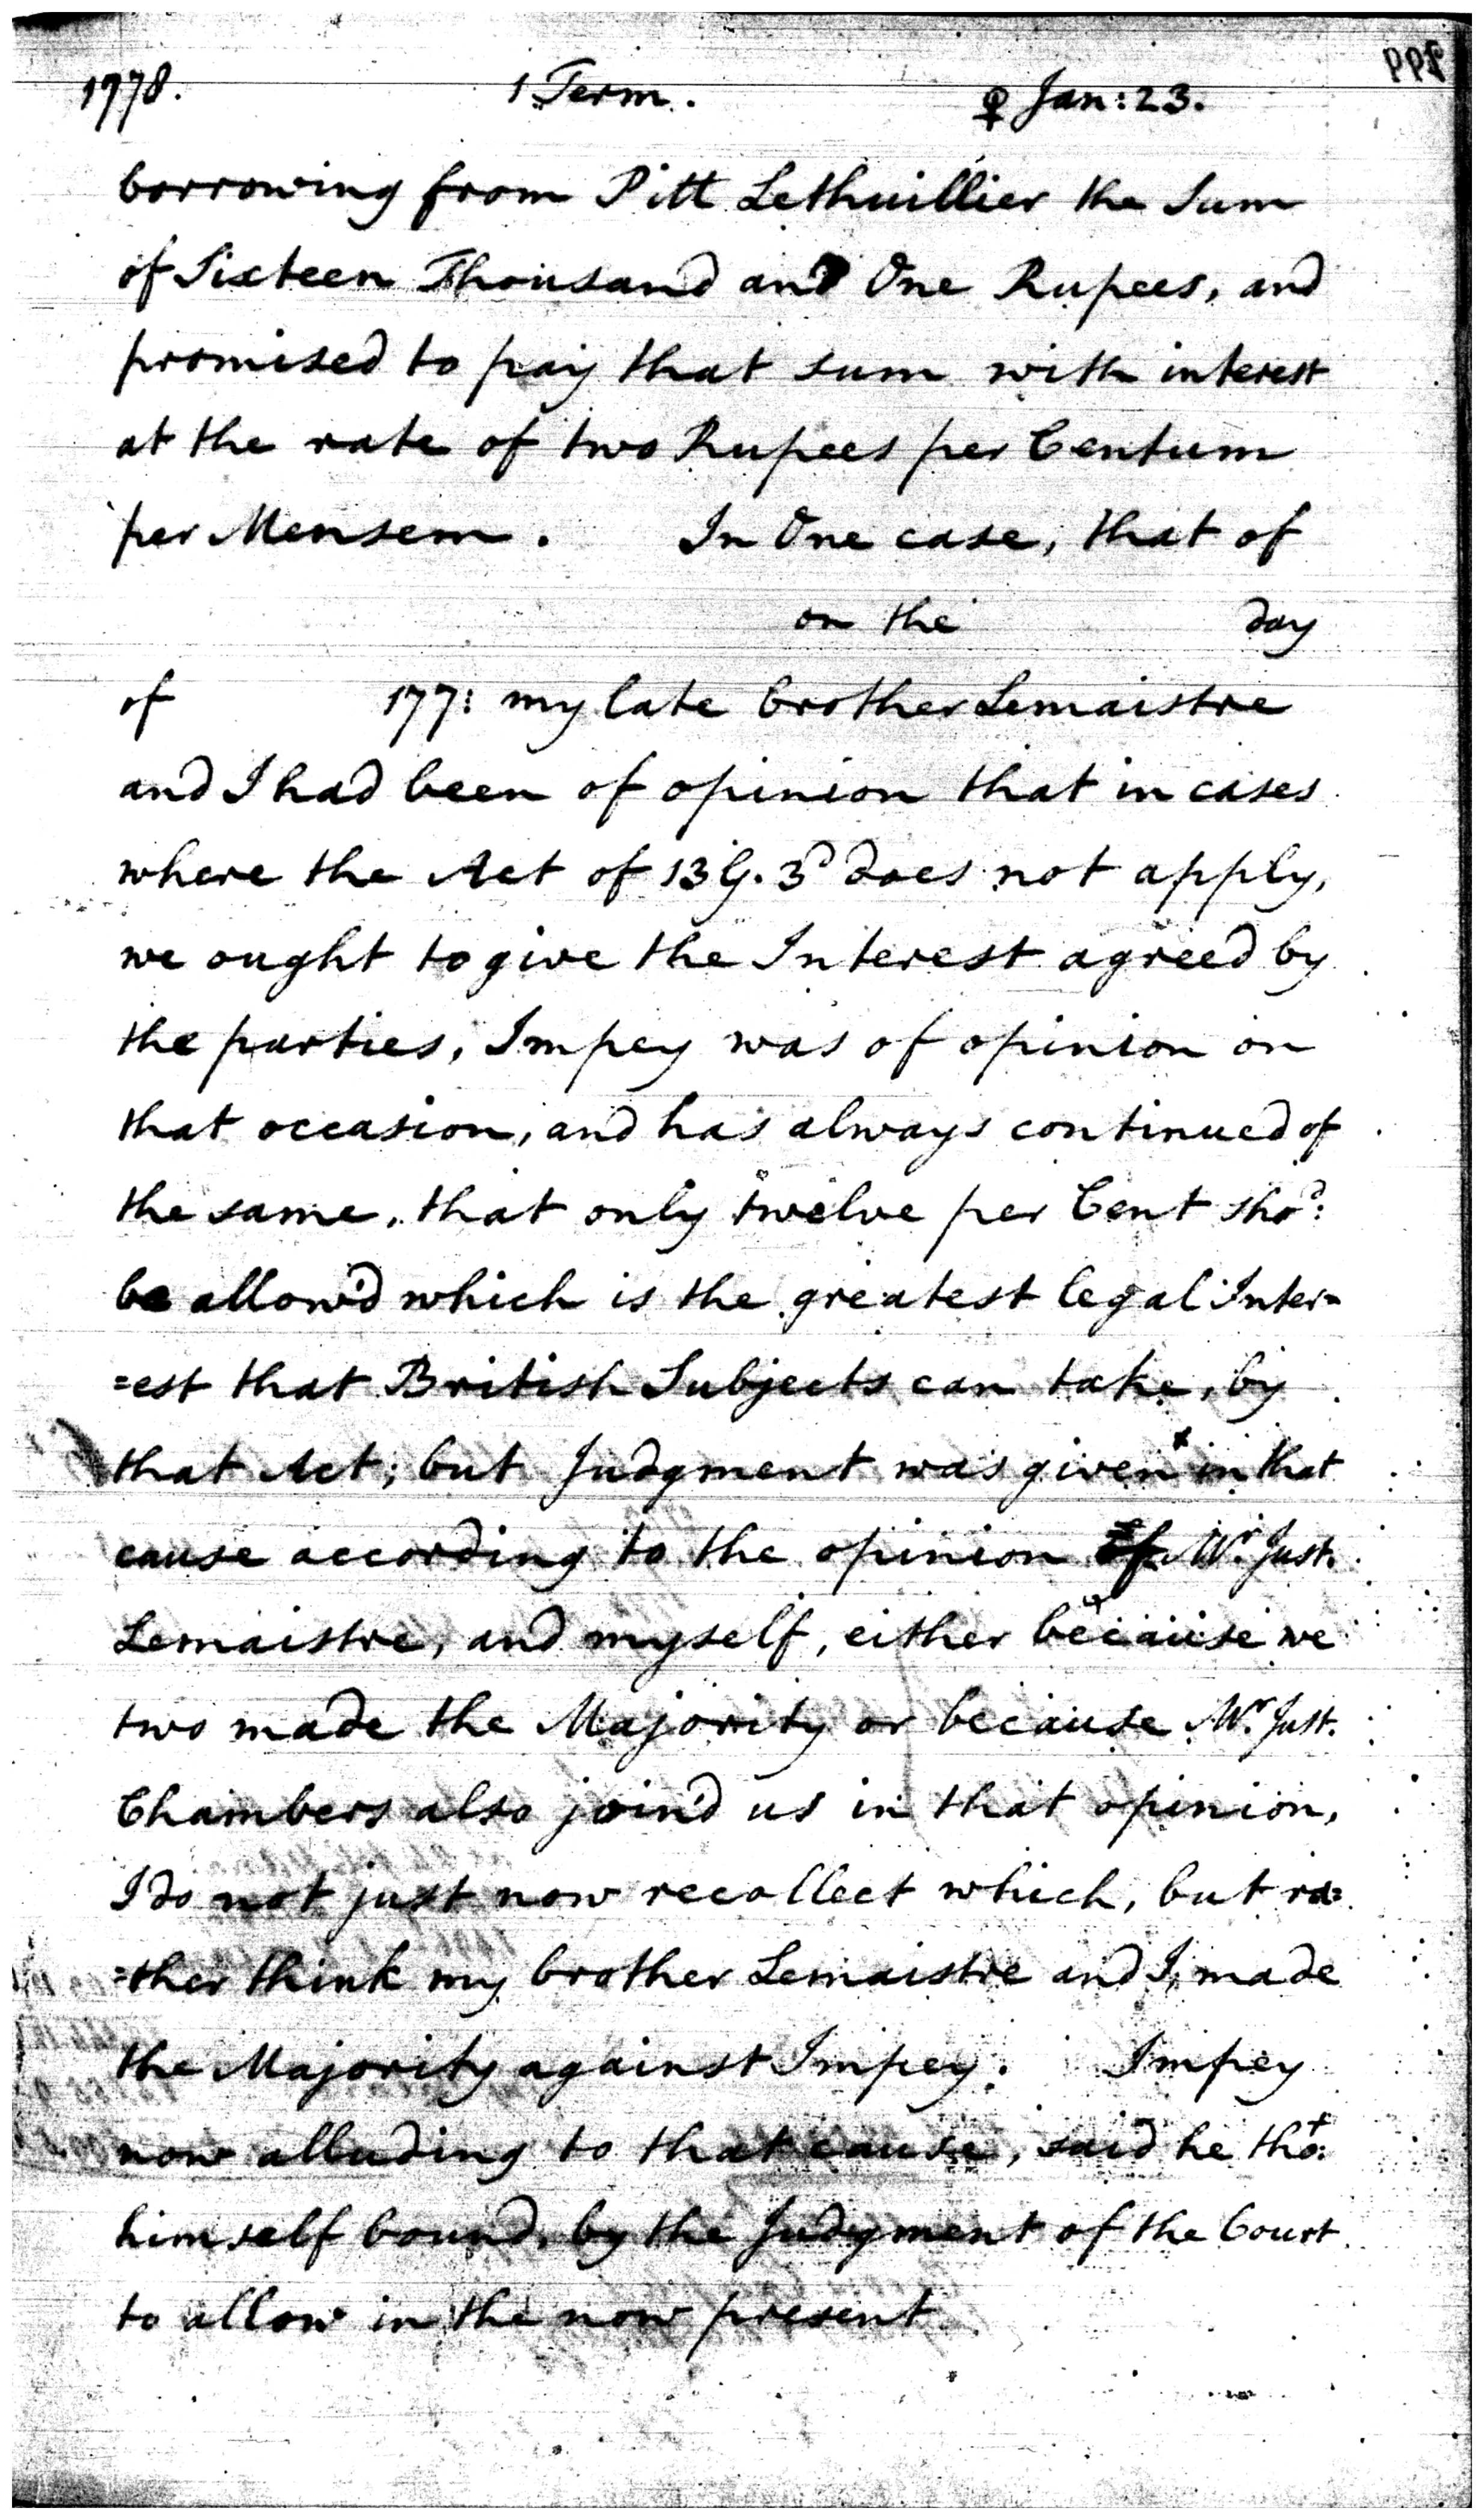 1778. 1 Term. ♀ Jan: 23.
borrowing from Pitt Lethuillier the Sum
of Sixteen Thousand and One Rupees, and
promised to pay that sum with interest
at the rate of two Rupees per Centum
per Mensem. In One case, that of
on the day
of 177: my late brother Lemaistre
and I had been of opinion that in cases
where the Act of 13 G. 3d does not apply,
we ought to give the Interest agreed by
the parties, Impey was of opinion on
that occasion, and has always continued of
the same, that only twelve per Cent shod:
be allow'd which is the greatest legal Inter=
=est that British Subjects can take, by
that Act; but Judgment was given x in that
cause according to the opinion of Mr. Just.
Lemaistre, and myself, either because we
two made the Majority or because Mr. Just.
Chambers also join'd us in that opinion,
I do not just now recollect which, but ra=
=ther think my brother Lemaistre and I, made
the Majority against Impey. Impey
now alluding to that cause, said he thot:
himself bound, by the Judgment of the Court
to allow in the now present